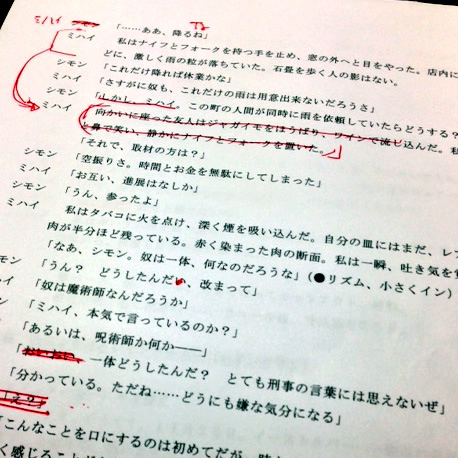 ミハイ
「……ああ、降るね」
ミハイ 私はナイフとフォークを持つ手を止め、窓の外へと目をやった。店内に
どに、激しく雨の粒が落ちていた。石畳を歩く人の影はない。
シモン 「これだけ降れば休業かな」
ミハイ 「さすがに奴も、これだけの雨は用意出来ないだろうさ」
シモン 「しかし、ミハイ。この町の人間が同時に雨を依頼していたらどうする?
ミハイ 向かいに座った友人はジャガイモをほうばり、ワインで流し込んだ。私
と鼻で笑い、静かにナイフとフォークを置いた。
シモン 「それで、取材の方は?」
ミハイ 「空振りさ。時間とお金を無駄にしてしまった」
シモン 「お互い、進展はなしか」
シモン 「うん、参ったよ」
ミハイ 私はタバコに火を点け、深く煙を吸い込んだ。自分の皿にはまだ、レア
肉が半分ほど残っている。赤く染まった肉の断面。私は一瞬、吐き気を
「なあ、シモン。奴は一体、何なのだろうな」(●リズム、小さくイン)
「うん? どうしたんだい、改まって」
「奴は魔術師なんだろうか」
「ミハイ、本気で言っているのか?」
「あるいは、呪術師か何か――」
一体どうしたんだ? とても刑事の言葉には思えないぜ」
「分かっている。ただね……どうにも嫌な気分になる」
「え?」
「こんなことを口にするのは初めてだが、時